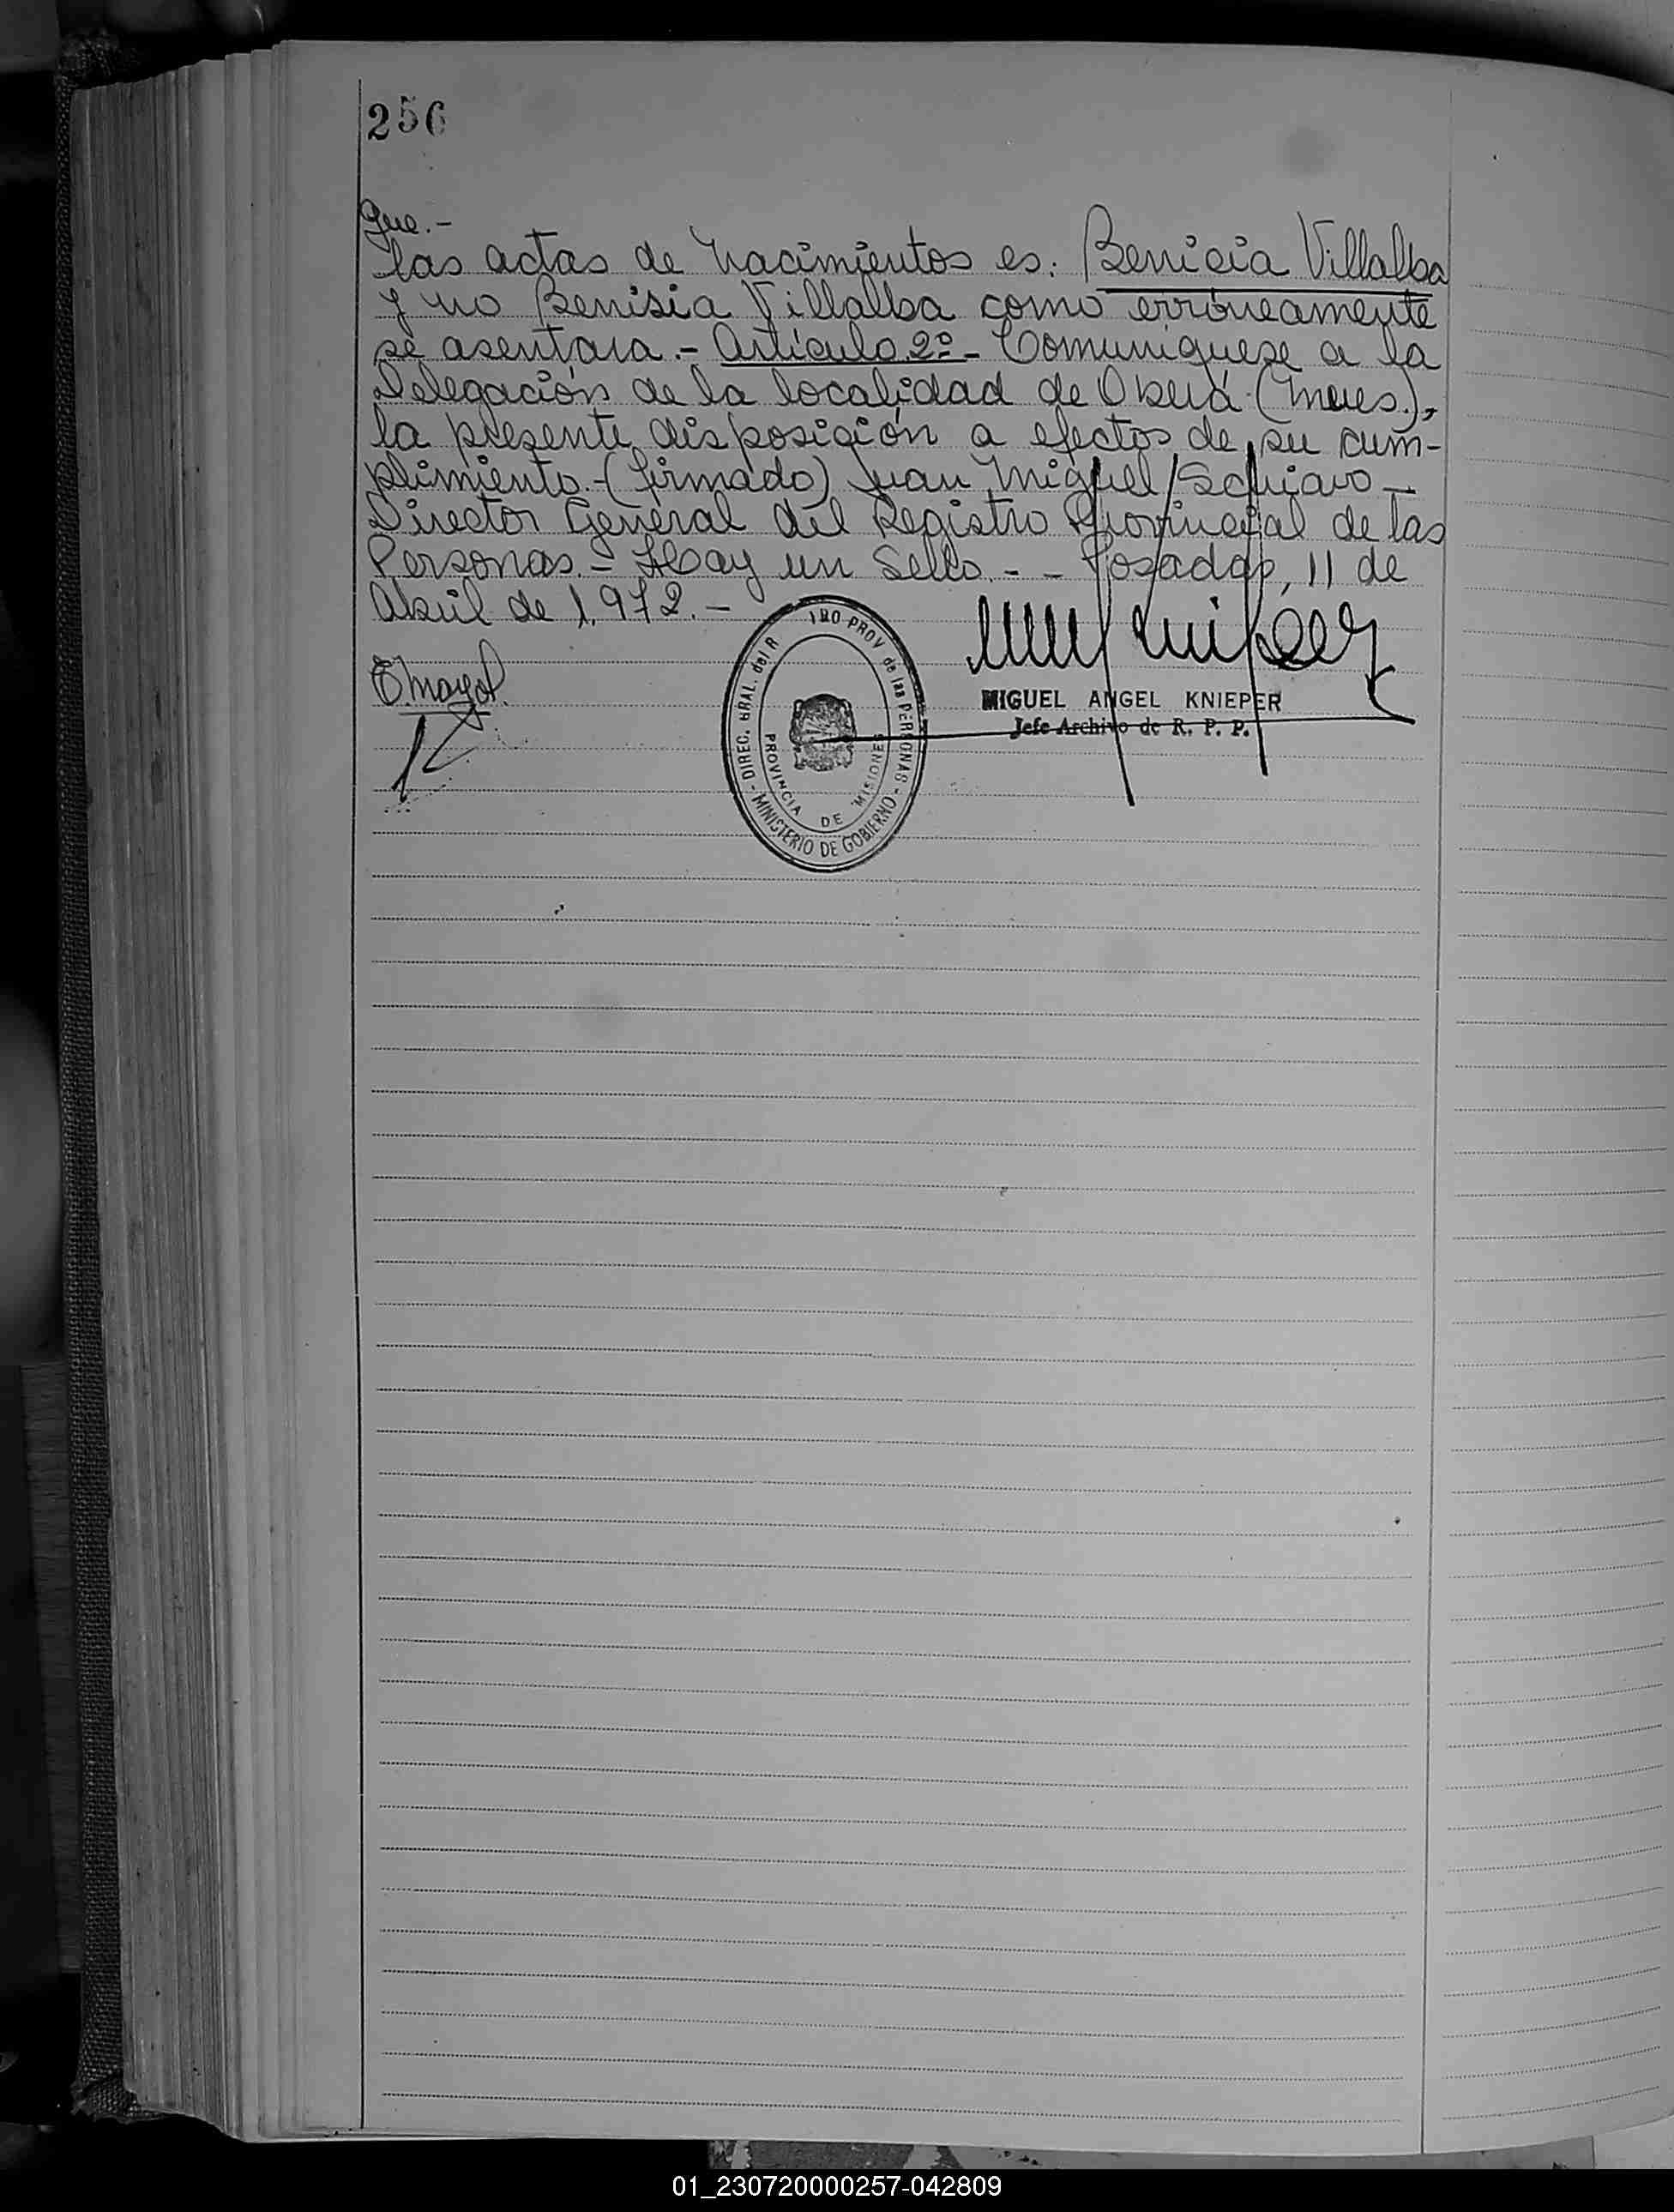 256
que.-
las actas de nacimientos es: Benicia Villalba
y no Benisia Villalba como erróneamente
se asentara.- Artículo 2º- Comuníquese a la
Delegación de la localidad de Oberá (Mnes.),
la presente disposición a efectos de su cum-
plimiento.-(firmado) Juan Miguel Schiavo-
Director General del Registro Provincial de las
Personas.- Hay un Sello.- - Posadas, 11 de
Abril de 1.972.-
E. Mayol.
DIREC. GRAL. del R TRO PROV de las PERSONAS - MINISTERIO DE GOBIERNO -
PROVINCIA DE MISIONES
MIGUEL ANGEL KNIEPER
Jefe Archivo de R. P. P.
01_230720000257-042809